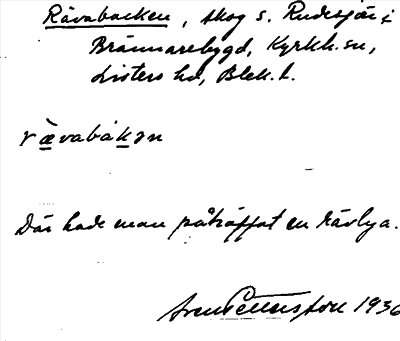 Rävabacken, skog s. Rudesjön i
Brännarebygd, Kyrkh. sn,
Listers hd, Blek. l.
rävabåkən
Där hade man påträffat en rävlya.
1936